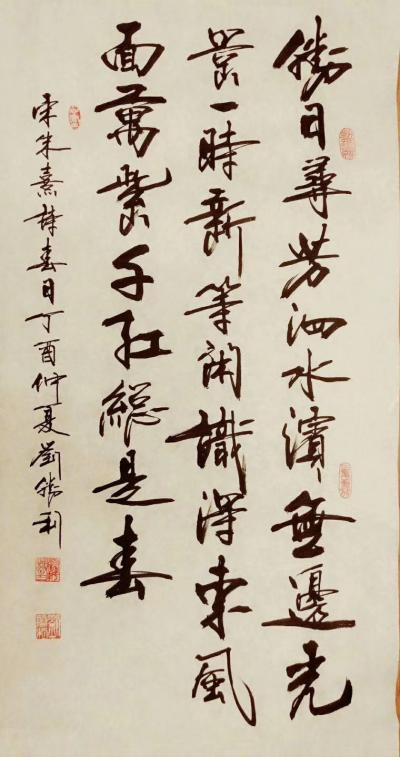 勝日尋芳泗水濱無邊光
景一時新等閑識得東風
面萬紫千紅總是春
宋朱熹詩春日丁酉仲夏劉勝利